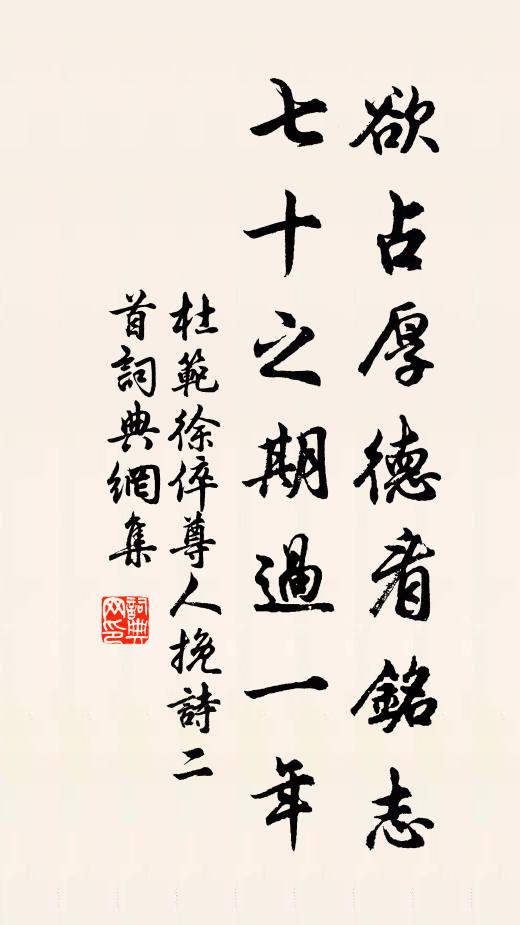 欲占厚德看銘志
七十之期過一年
杜範徐倅尊人挽詩二
首詞典網集
詞典
网印